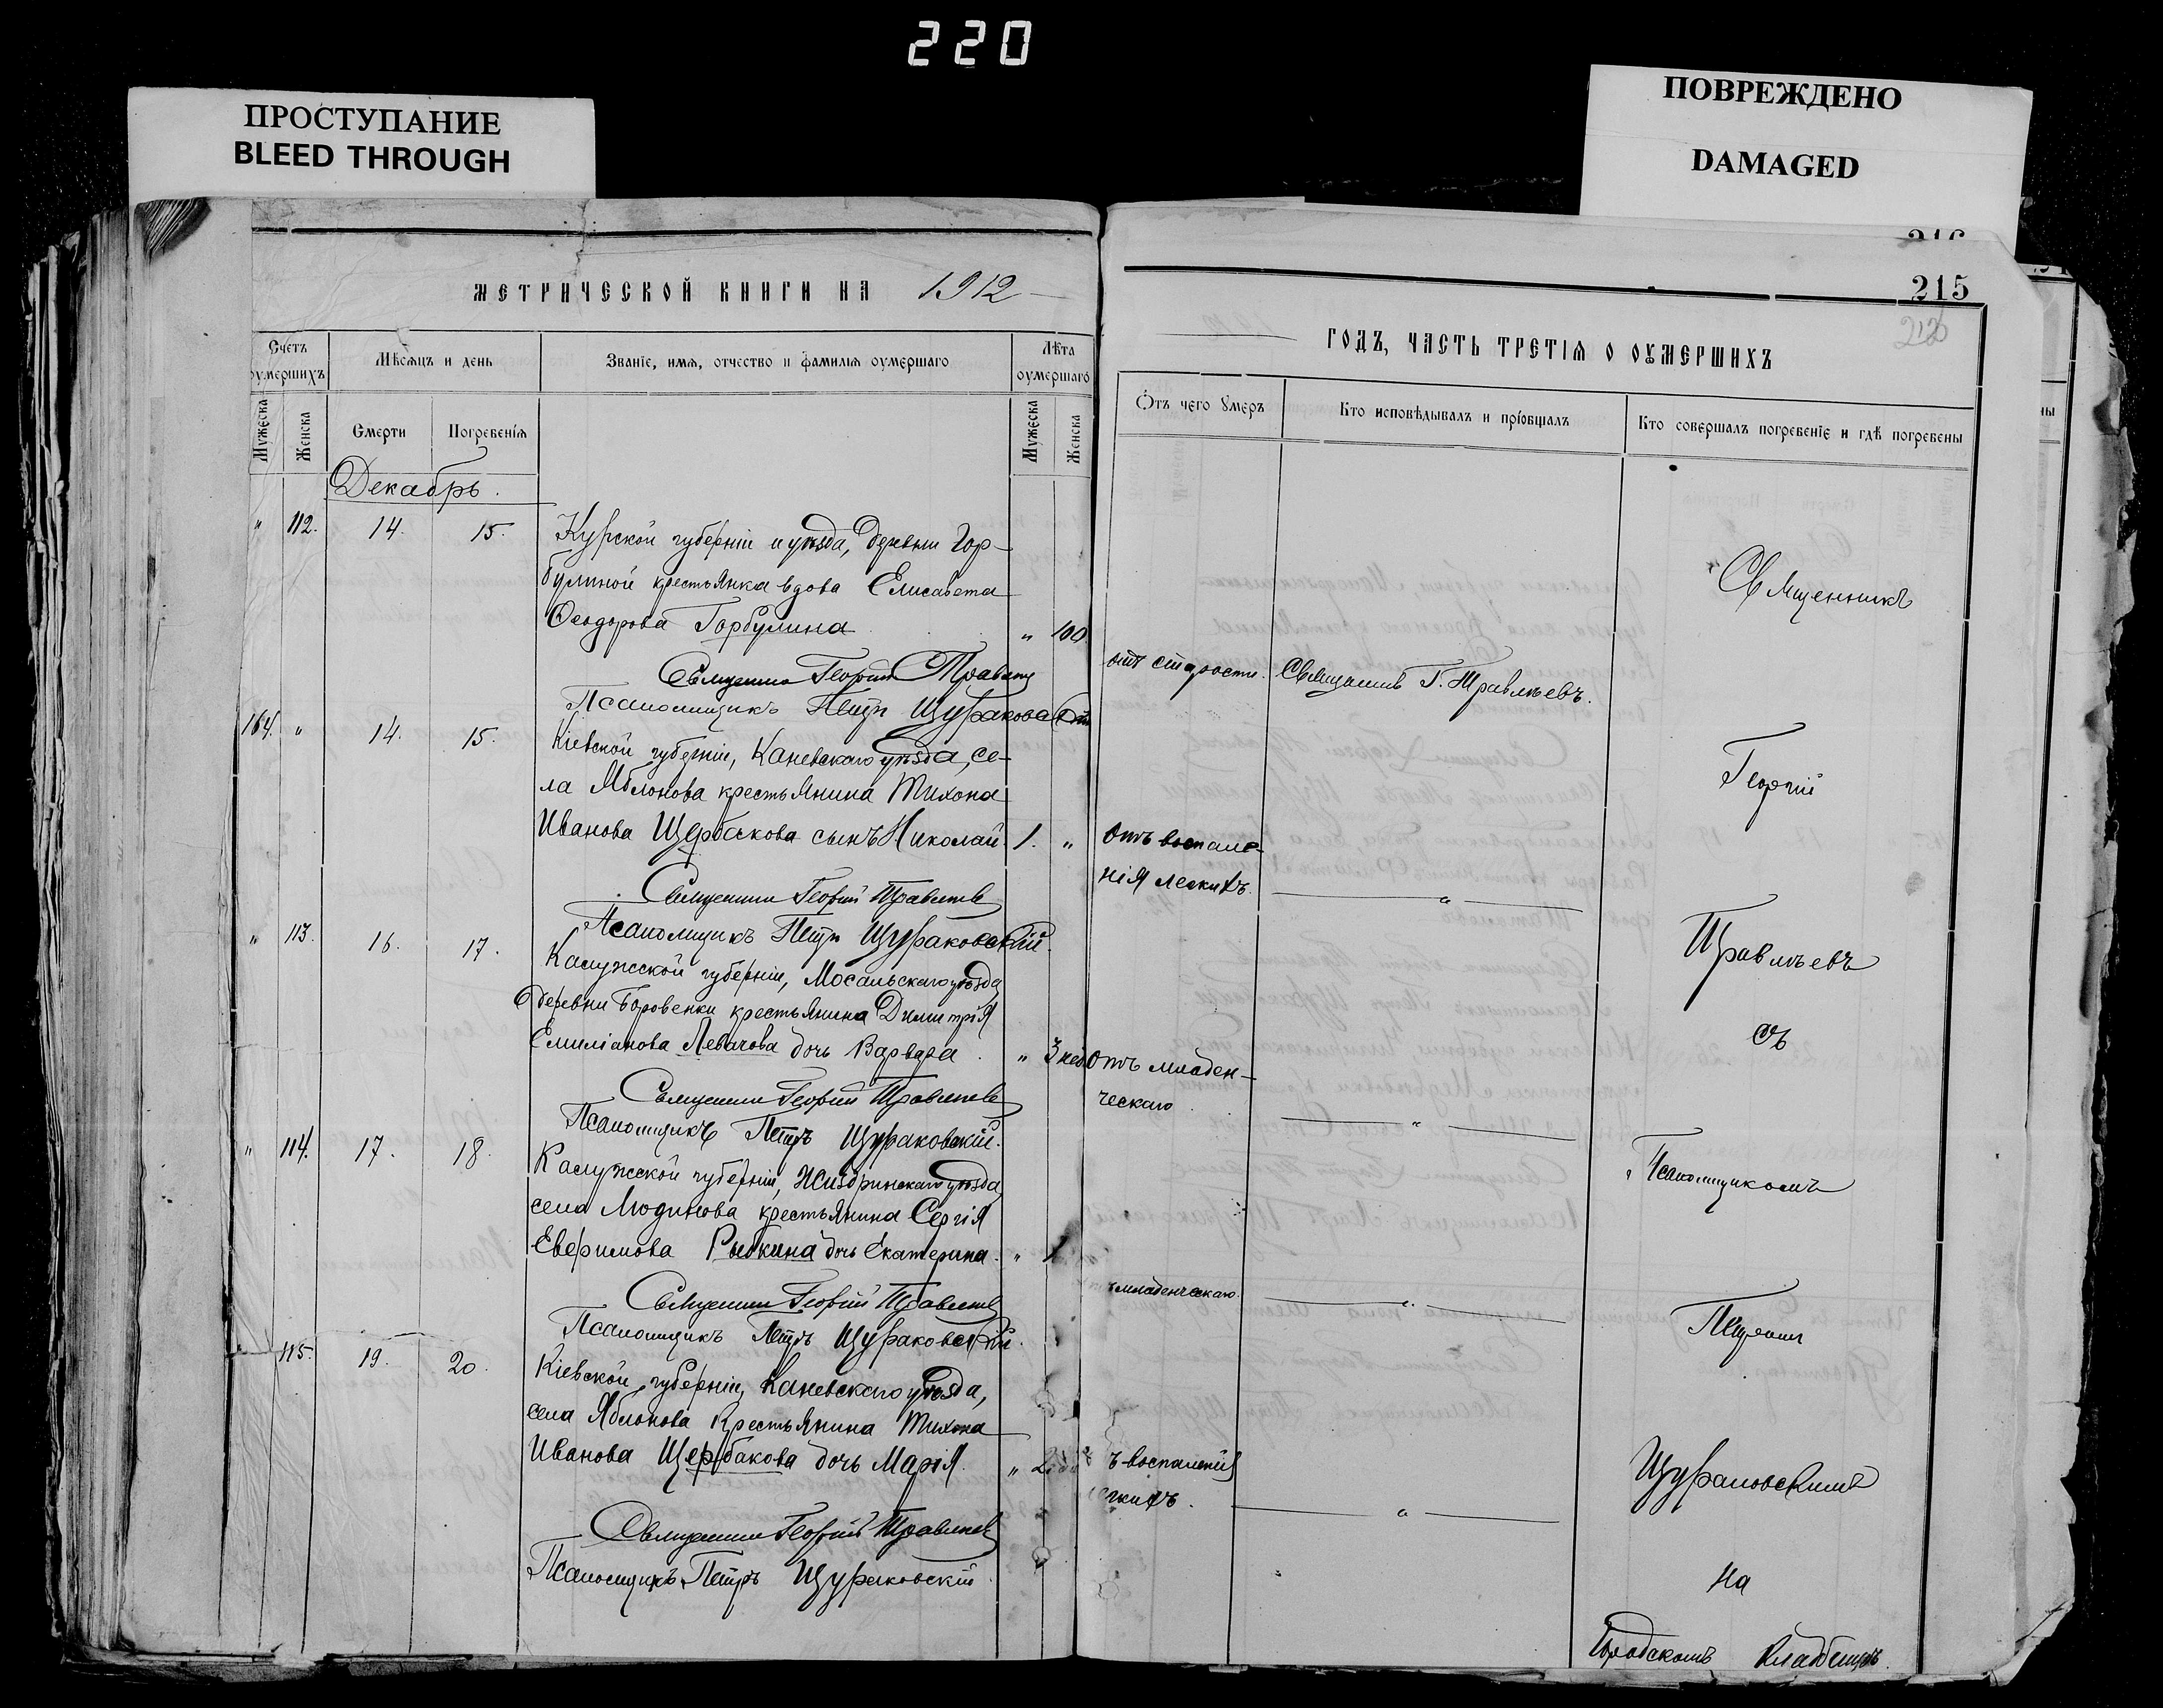 220
ПРОСТУПАНИЕ
BLEED THROUGH
ПОВРЕЖДЕНО
DAMAGED
МЕТРИЧЕСКОЙ КНИГИ НА 1912
Счетъ оумершихъ
Мѣсяцъ и день
Званіе, имя, отчество и фамилія оумершаго
Лѣта оумершаго
Мужеска
Женска
Смерти
Погребенія
Мужеска
Женска
Декабрь.
" 112. 14. 15. Курской губерніи и уѣзда, деревни Гор-
булиной крестьянка вдова Елисавета
Ѳеодорова Горбулина " 100
Священникъ Георгій Травлѣевъ
Псаломщикъ Петръ Щураковскій
164. " 14. 15. Кіевской губерніи, Каневскаго уѣзда, се-
ла Яблонова крестьянина Тихона
Иванова Щербакова сынъ Николай. 1. "
Священникъ Георгій Травлѣевъ
Псаломщикъ Петръ Щураковскій.
" 113. 16. 17. Калужской губерніи, Мосальскаго уѣзда
деревни Боровенки крестьянина Димитрія
Емиліанова Левачова дочь Варвара. " 3 нед
Священникъ Георгій Травлѣевъ
Псаломщикъ Петръ Щураковскій.
" 114. 17. 18. Калужской губерніи, Жиздринскаго уѣзда
села Людинова крестьянина Сергія
Евфимова Рыбкина дочь Екатерина. "
Священникъ Георгій Травлѣевъ
Псаломщикъ Петръ Щураковскій.
115. 19. 20. Кіевской губерніи, Каневскаго уѣзда,
села Яблонова крестьянина Тихона
Иванова Щербакова дочь Марія. "
Священникъ Георгій Травлѣевъ
Псаломщикъ Петръ Щураковскій
216
215
ГОДЪ, ЧАСТЬ ТРЕТІЯ О ОУМЕРШИХЪ
Отъ чего умеръ
Кто исповѣдывалъ и пріобщалъ
Кто совершалъ погребеніе и гдѣ погребены
отъ старости. Священникъ Г. Травлѣевъ.
Отъ воспале-
нія легкихъ. "
Отъ младен-
ческаго. "
ъ младенческаго. "
ъ воспаленія
егкихъ. "
Священникъ
Георгій
Травлѣевъ
съ
Псаломщикомъ
Петромъ
Щураковскимъ
на
Городскомъ кладбищѣ.